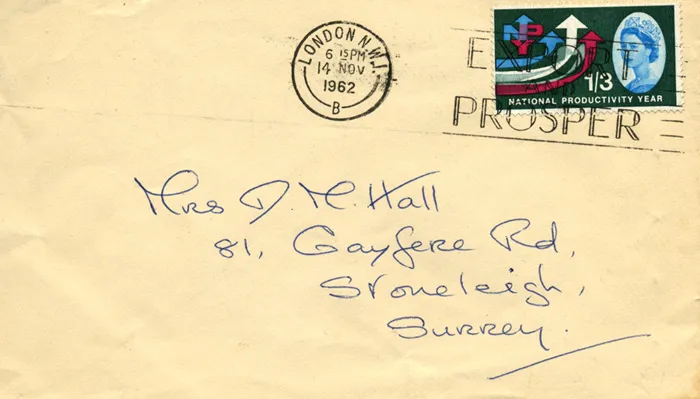 LONDON N.W.1.
6 15PM
14 NOV
1962
B
EXPORT
AND
PROSPER
NPY
1/3
NATIONAL PRODUCTIVITY YEAR
Mrs D. M. Hall
81, Gayfere Rd,
Stoneleigh,
Surrey.